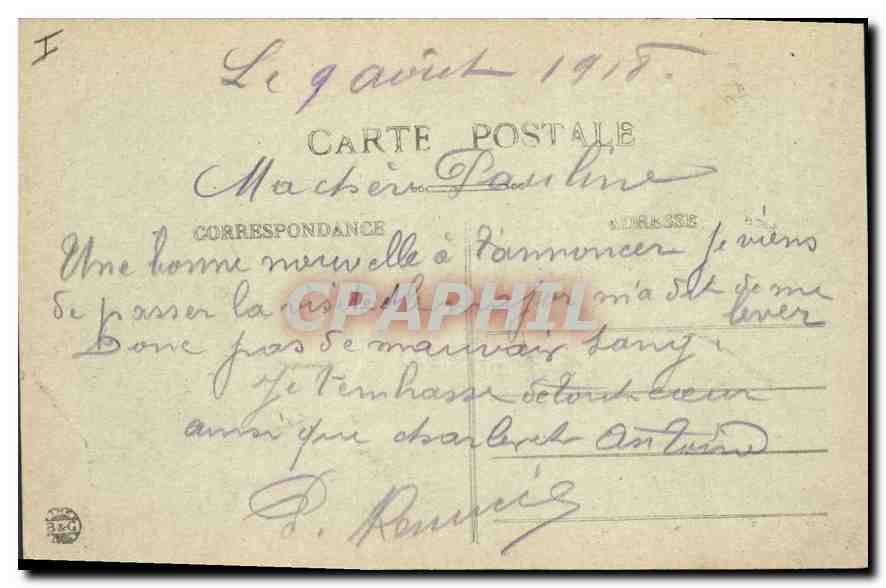 I
Le 9 août 1918.
CARTE POSTALE
Ma chère Pauline
CORRESPONDANCE ADRESSE
Une bonne nouvelle à t'annoncer je viens
de passer la visite le major m'a dit de me
lever
Donc pas de mauvais sang.
Je t'embrasse de tout cœur
ainsi que charles et Antoine
P.
B&G
CPAPHIL